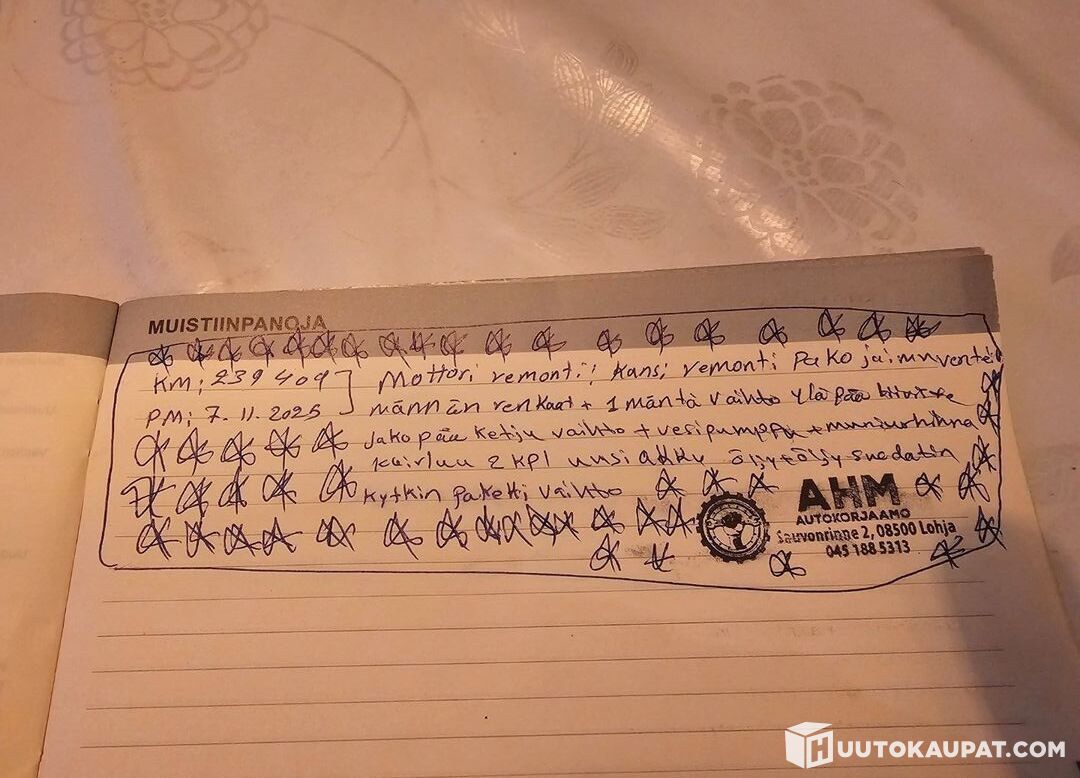 MUISTIINPANOJA
KM; 239409 Mottori remonti; Kansi remonti Pako ja imuventei
PM; 7.11.2025 männän renkaat + 1 mäntä Vaihto ylä pää
Jako pää ketju vaihto + vesipumppu +
2 KPL uusi akku öljy+öljy suodatin
Kytkin paketti vaihto
AHM
AUTOKORJAAMO
Sauvonrinne 2, 08500 Lohja
045 188 5313
HUUTOKAUPAT.COM